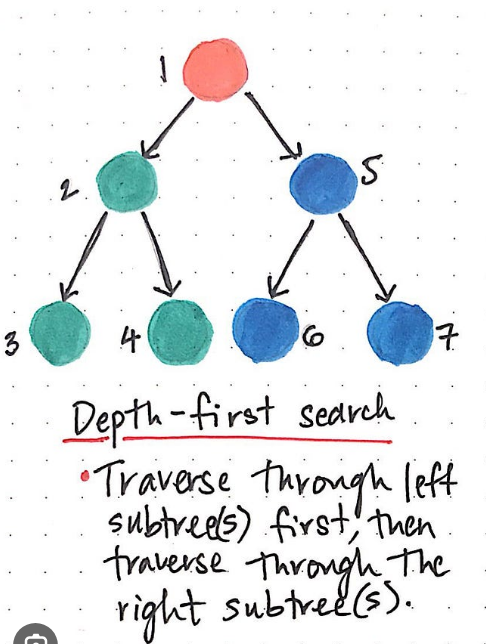 1
2
5
3
4
6
7
Depth-first search
• Traverse through left
subtree(s) first, then
traverse through the
right subtree(s).